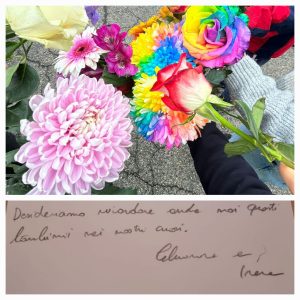 Desideriamo ricordare anche noi questi
bambini nei nostri cuori.
e
Irene